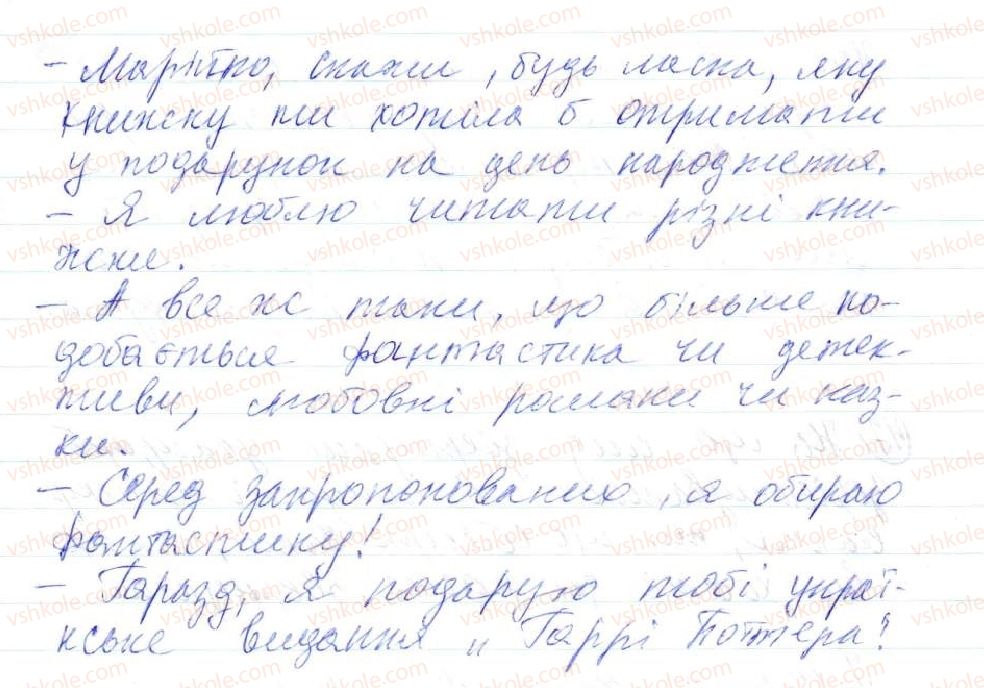 - Марійко, скажи, будь ласка, яку
книжку ти хотіла б отримати
у подарунок на день народження.
- Я люблю читати різні кни-
жки.
- А все ж таки, що більше по-
добається фантастика чи детек-
тиви, любовні романи чи каз-
ки.
- Серед запропонованих, я обираю
фантастику!
- Гаразд, я подарую тобі украї-
нське видання „Гаррі Поттера"!